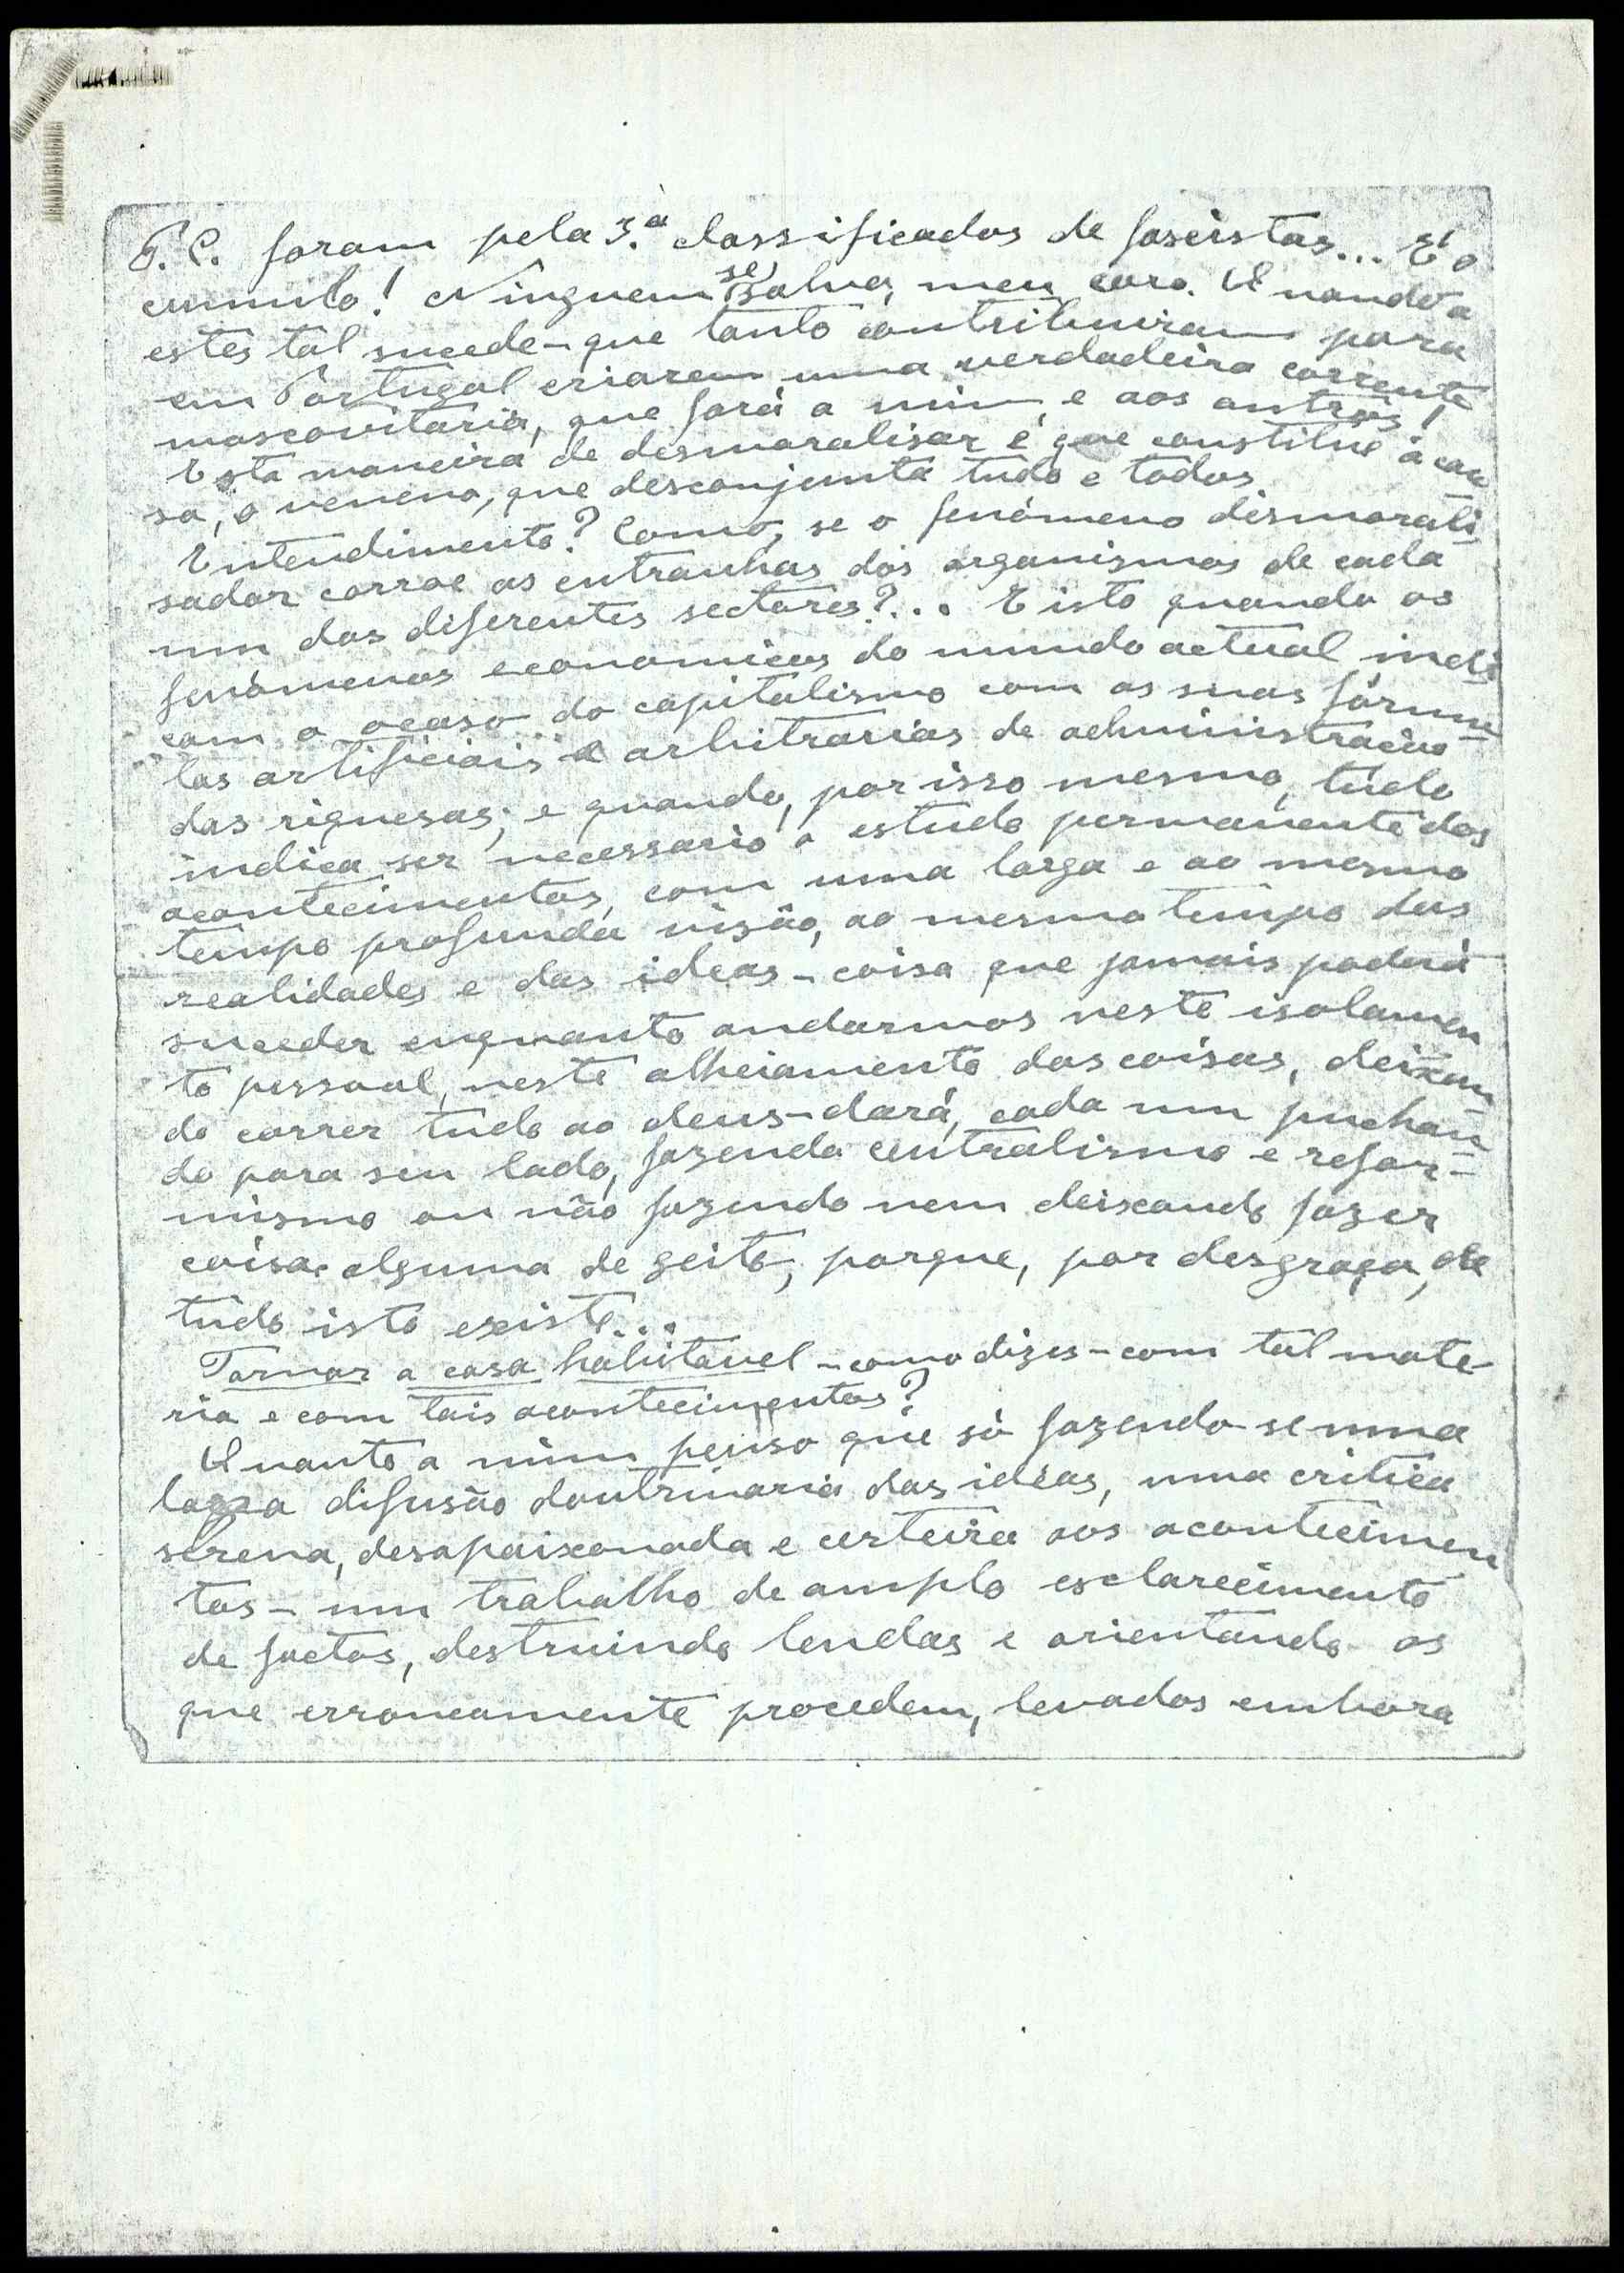 P. C. foram pela 3.ª classificados de fascistas... E' o
cumulo! Ninguem se salva, meu caro. Quando a
estes tal sucede - que tanto contribuiram para
em Portugal criarem uma verdadeira corrente
moscovitaria, que fará a mim e aos antros!
Esta maneira de desmoralisar é que constitue a cau
sa, o veneno, que desconjunta tudo e todos.
Entendimento? Como, se o fenómeno desmorali-
sador corroe as entranhas dos organismos de cada
um dos diferentes sectores?... E isto quando os
fenómenos economicos do mundo actual indi
cam o ocaso do capitalismo com as suas fórmu-
las artificiais e arbitrarias de administração
das riquesas; e quando, por isso mesmo, tudo
indica ser necessario o estudo permanente dos
acontecimentos, com uma larga e ao mesmo
tempo profunda visão, ao mesmo tempo das
realidades e das ideas - coisa que jamais poderá
suceder enquanto andarmos neste isolamen
to pessoal, neste alheiamento das coisas, deixan-
do correr tudo ao deus-dará, cada um puchan-
do para seu lado, fazendo centralismo e refor-
mismo ou não fazendo nem deixando fazer
coisa alguma de geito, porque, por desgraça, de
tudo isto existe...
Tornar a casa habitavel - como dizes - com tal mate-
ria e com tais acontecimentos?
Quanto a mim penso que só fazendo-se uma
larga difusão doutrinaria das idéas, uma critica
serena, desapaixonada e certeira aos acontecimen
tos - um trabalho de amplo esclarecimento
de factos, destruindo lendas e orientando os
que erroneamente procedem, levados embora